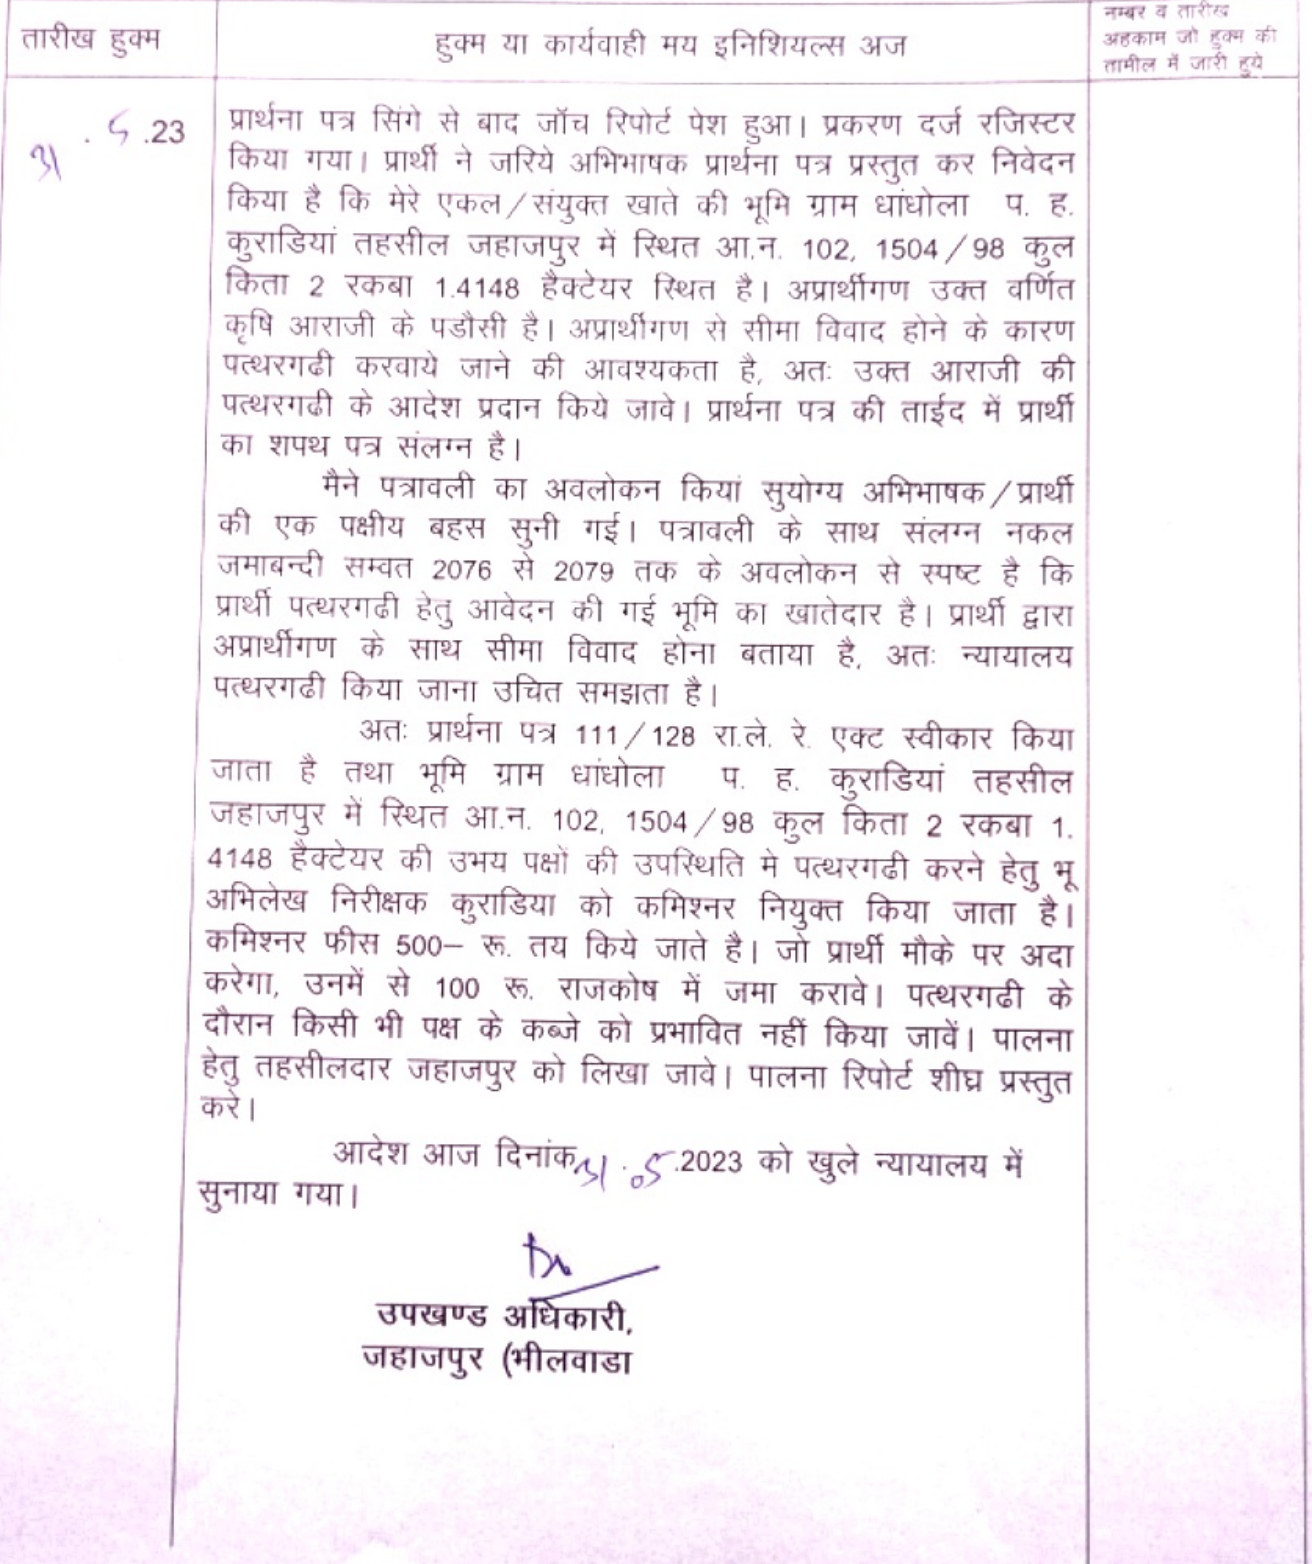 तारीख हुक्म
हुक्म या कार्यवाही मय इनिशियल्स अज
नम्बर व तारीख
अहकाम जो हुक्म की
तामील में जारी हुये
31 . 5 .23
प्रार्थना पत्र सिंगे से बाद जॉच रिपोर्ट पेश हुआ। प्रकरण दर्ज रजिस्टर
किया गया। प्रार्थी ने जरिये अभिभाषक प्रार्थना पत्र प्रस्तुत कर निवेदन
किया है कि मेरे एकल/संयुक्त खाते की भूमि ग्राम धांधोला प. ह.
कुराडियां तहसील जहाजपुर में स्थित आ.न. 102, 1504/98 कुल
किता 2 रकबा 1.4148 हैक्टेयर स्थित है। अप्रार्थीगण उक्त वर्णित
कृषि आराजी के पडौसी है। अप्रार्थीगण से सीमा विवाद होने के कारण
पत्थरगढी करवाये जाने की आवश्यकता है, अतः उक्त आराजी की
पत्थरगढी के आदेश प्रदान किये जावे। प्रार्थना पत्र की ताईद में प्रार्थी
का शपथ पत्र संलग्न है।
मैने पत्रावली का अवलोकन कियां सुयोग्य अभिभाषक/प्रार्थी
की एक पक्षीय बहस सुनी गई। पत्रावली के साथ संलग्न नकल
जमाबन्दी सम्वत 2076 से 2079 तक के अवलोकन से स्पष्ट है कि
प्रार्थी पत्थरगढी हेतु आवेदन की गई भूमि का खातेदार है। प्रार्थी द्वारा
अप्रार्थीगण के साथ सीमा विवाद होना बताया है, अतः न्यायालय
पत्थरगढी किया जाना उचित समझता है।
अतः प्रार्थना पत्र 111/128 रा.ले. रे. एक्ट स्वीकार किया
जाता है तथा भूमि ग्राम धांधोला प. ह. कुराडियां तहसील
जहाजपुर में स्थित आ.न. 102, 1504/98 कुल किता 2 रकबा 1.
4148 हैक्टेयर की उभय पक्षों की उपस्थिति मे पत्थरगढी करने हेतु भू
अभिलेख निरीक्षक कुराडिया को कमिश्नर नियुक्त किया जाता है।
कमिश्नर फीस 500– रू. तय किये जाते है। जो प्रार्थी मौके पर अदा
करेगा, उनमें से 100 रू. राजकोष में जमा करावे। पत्थरगढी के
दौरान किसी भी पक्ष के कब्जे को प्रभावित नहीं किया जावें। पालना
हेतु तहसीलदार जहाजपुर को लिखा जावे। पालना रिपोर्ट शीघ्र प्रस्तुत
करे।
आदेश आज दिनांक 31.05.2023 को खुले न्यायालय में
सुनाया गया।
उपखण्ड अधिकारी,
जहाजपुर (भीलवाडा